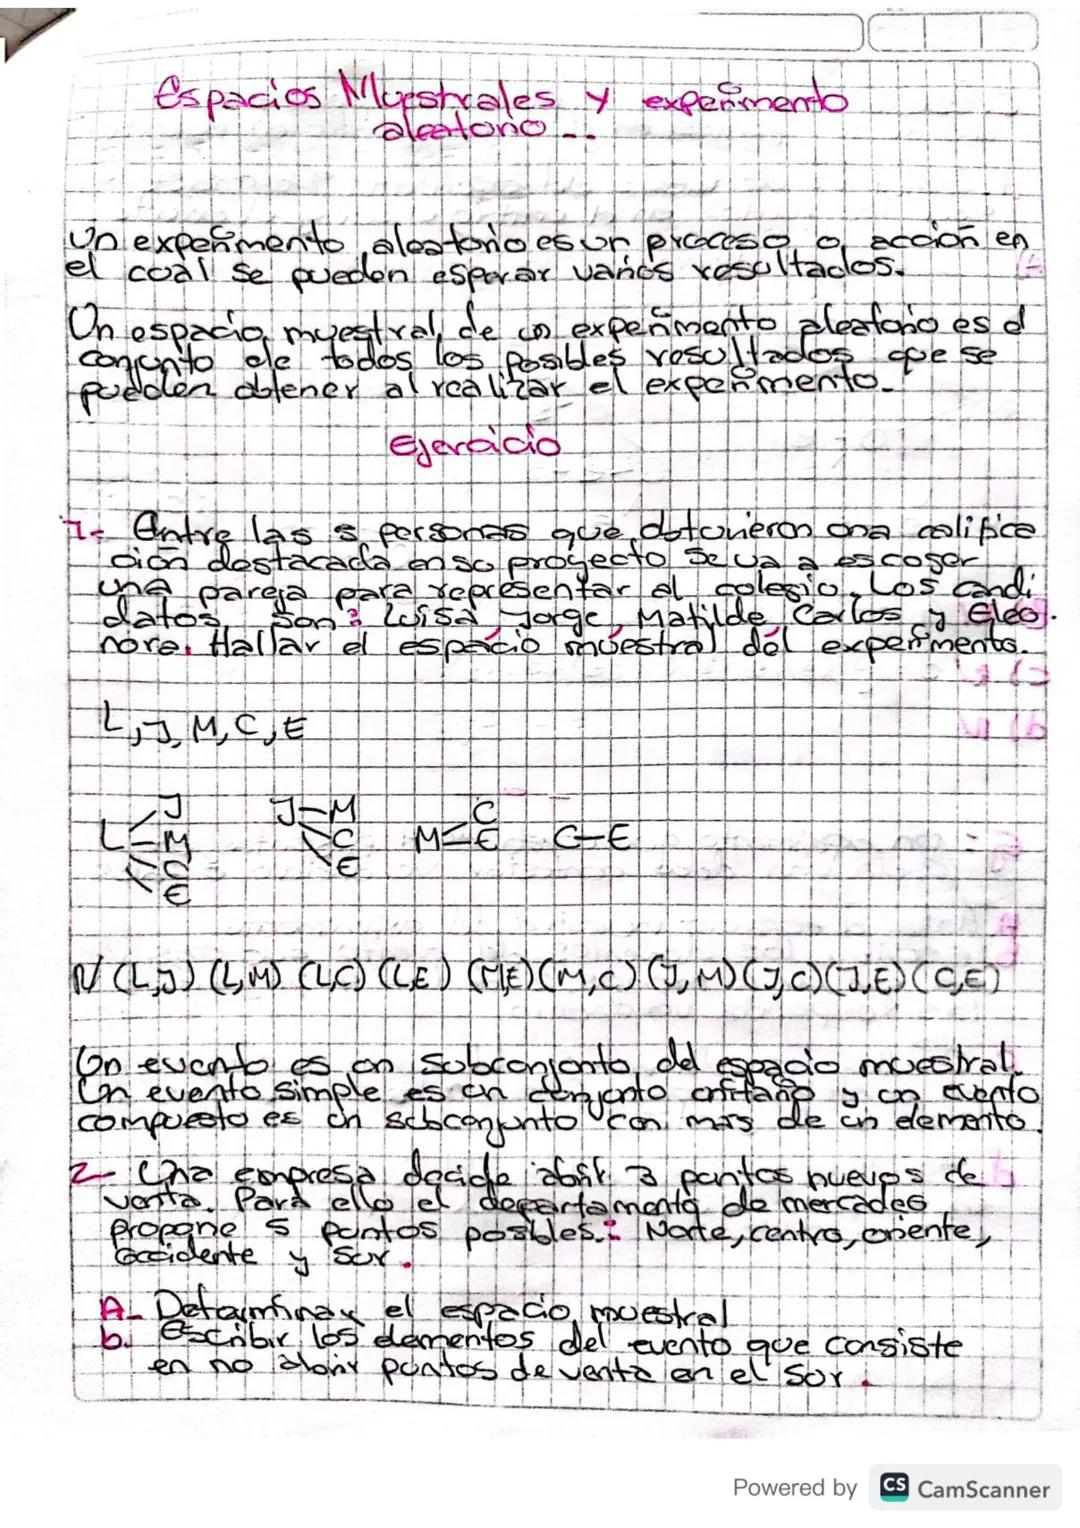 Espacios Muestrales y experimento
aleatorio --
Un experimento aleatorio es un proceso o acción en
el cual se pueden esperar varios resultados.
Un espacio muestral de un experimento aleatorio es el
conjunto de todos los posibles resultados que se
pueden obtener al realizar el experimento.
Ejercicio
1- Entre las 5 personas que obtuvieron una califica
ción destacada en su proyecto se va a escoger
una pareja para representar al colegio. Los candi
datos son: Luisa Jorge, Matilde, Carlos y Eleo
nora. Hallar el espacio muestral del experimento.
L, J, M, C, E
L J M C E
J M C E
M C E
C-E
R/ (L,J) (L,M) (L,C) (L,E) (M,E) (M,C) (J,M) (J,C) (J,E) (C,E)
Un evento es un subconjunto del espacio muestral.
Un evento simple es un conjunto unitario y un evento
compuesto es un subconjunto con mas de un elemento.
2- Una empresa decide abrir 3 puntos nuevos de
venta. Para ello el departamento de mercadeo
propone 5 puntos posibles: Norte, centro, oriente,
occidente y Sur.
A- Determinar el espacio muestral
b. Escribir los elementos del evento que consiste
en no abrir puntos de venta en el Sur.
Powered by CS CamScanner